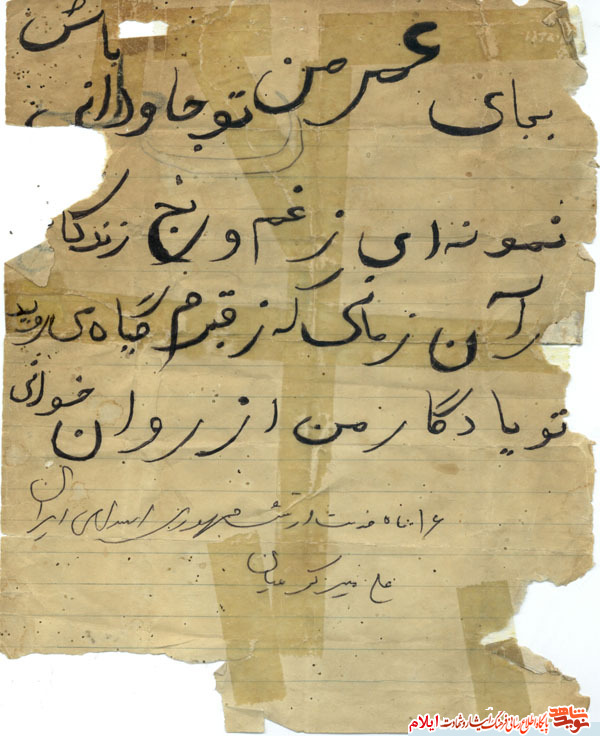 بجای عمر من تو جاودانی باش
نمونه ای ز غم و رنج زندگا
رآن زمانی که ز قبرم گیاه می روید
تو یادگار من از روان خوانی
۱۶ ماه خدمت ارتش جمهوری اسلامی ایران
علی میر کرمیان
نوید شاهد پایگاه اطلاع رسانی فرهنگ ایثار و شهادت ایلام